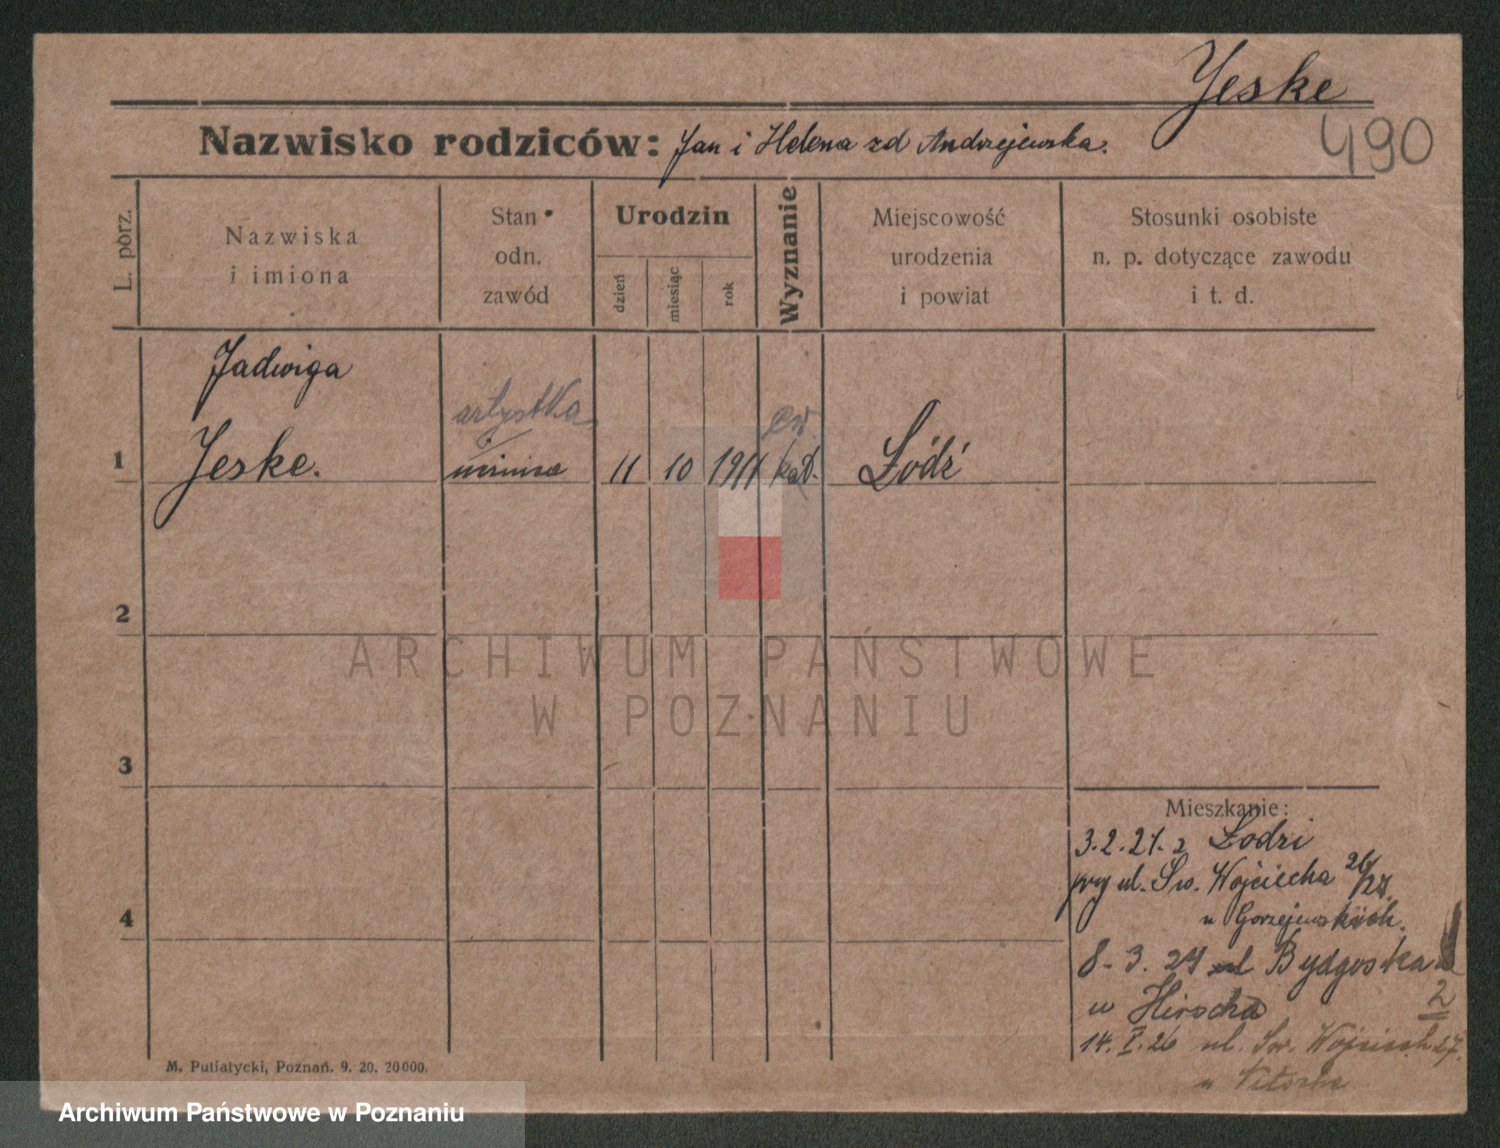 Jeske
490
Nazwisko rodziców: Jan i Helena zd Andrzejewska.
L. porz.
Nazwiska
i imiona
Stan
odn.
zawód
Urodzin
dzień
miesiąc
rok
Wyznanie
Miejscowość
urodzenia
i powiat
Stosunki osobiste
n. p. dotyczące zawodu
i t. d.
Jadwiga
artystka
ew.
1 Jeske. 11 10 1911 kat. Łódź
2
ARCHIWUM PAŃSTWOWE
W POZNANIU
3
4
Mieszkanie:
3.2.27. z Łodzi
przy ul. Św. Wojciecha 26/27.
u Gorzejewskich.
8-3.27 ul Bydgoska
u Hirscha 2
14. I. 26 ul. Św. Wojciech 27.
u
M. Putiatycki, Poznań. 9. 20. 20000.
Archiwum Państwowe w Poznaniu